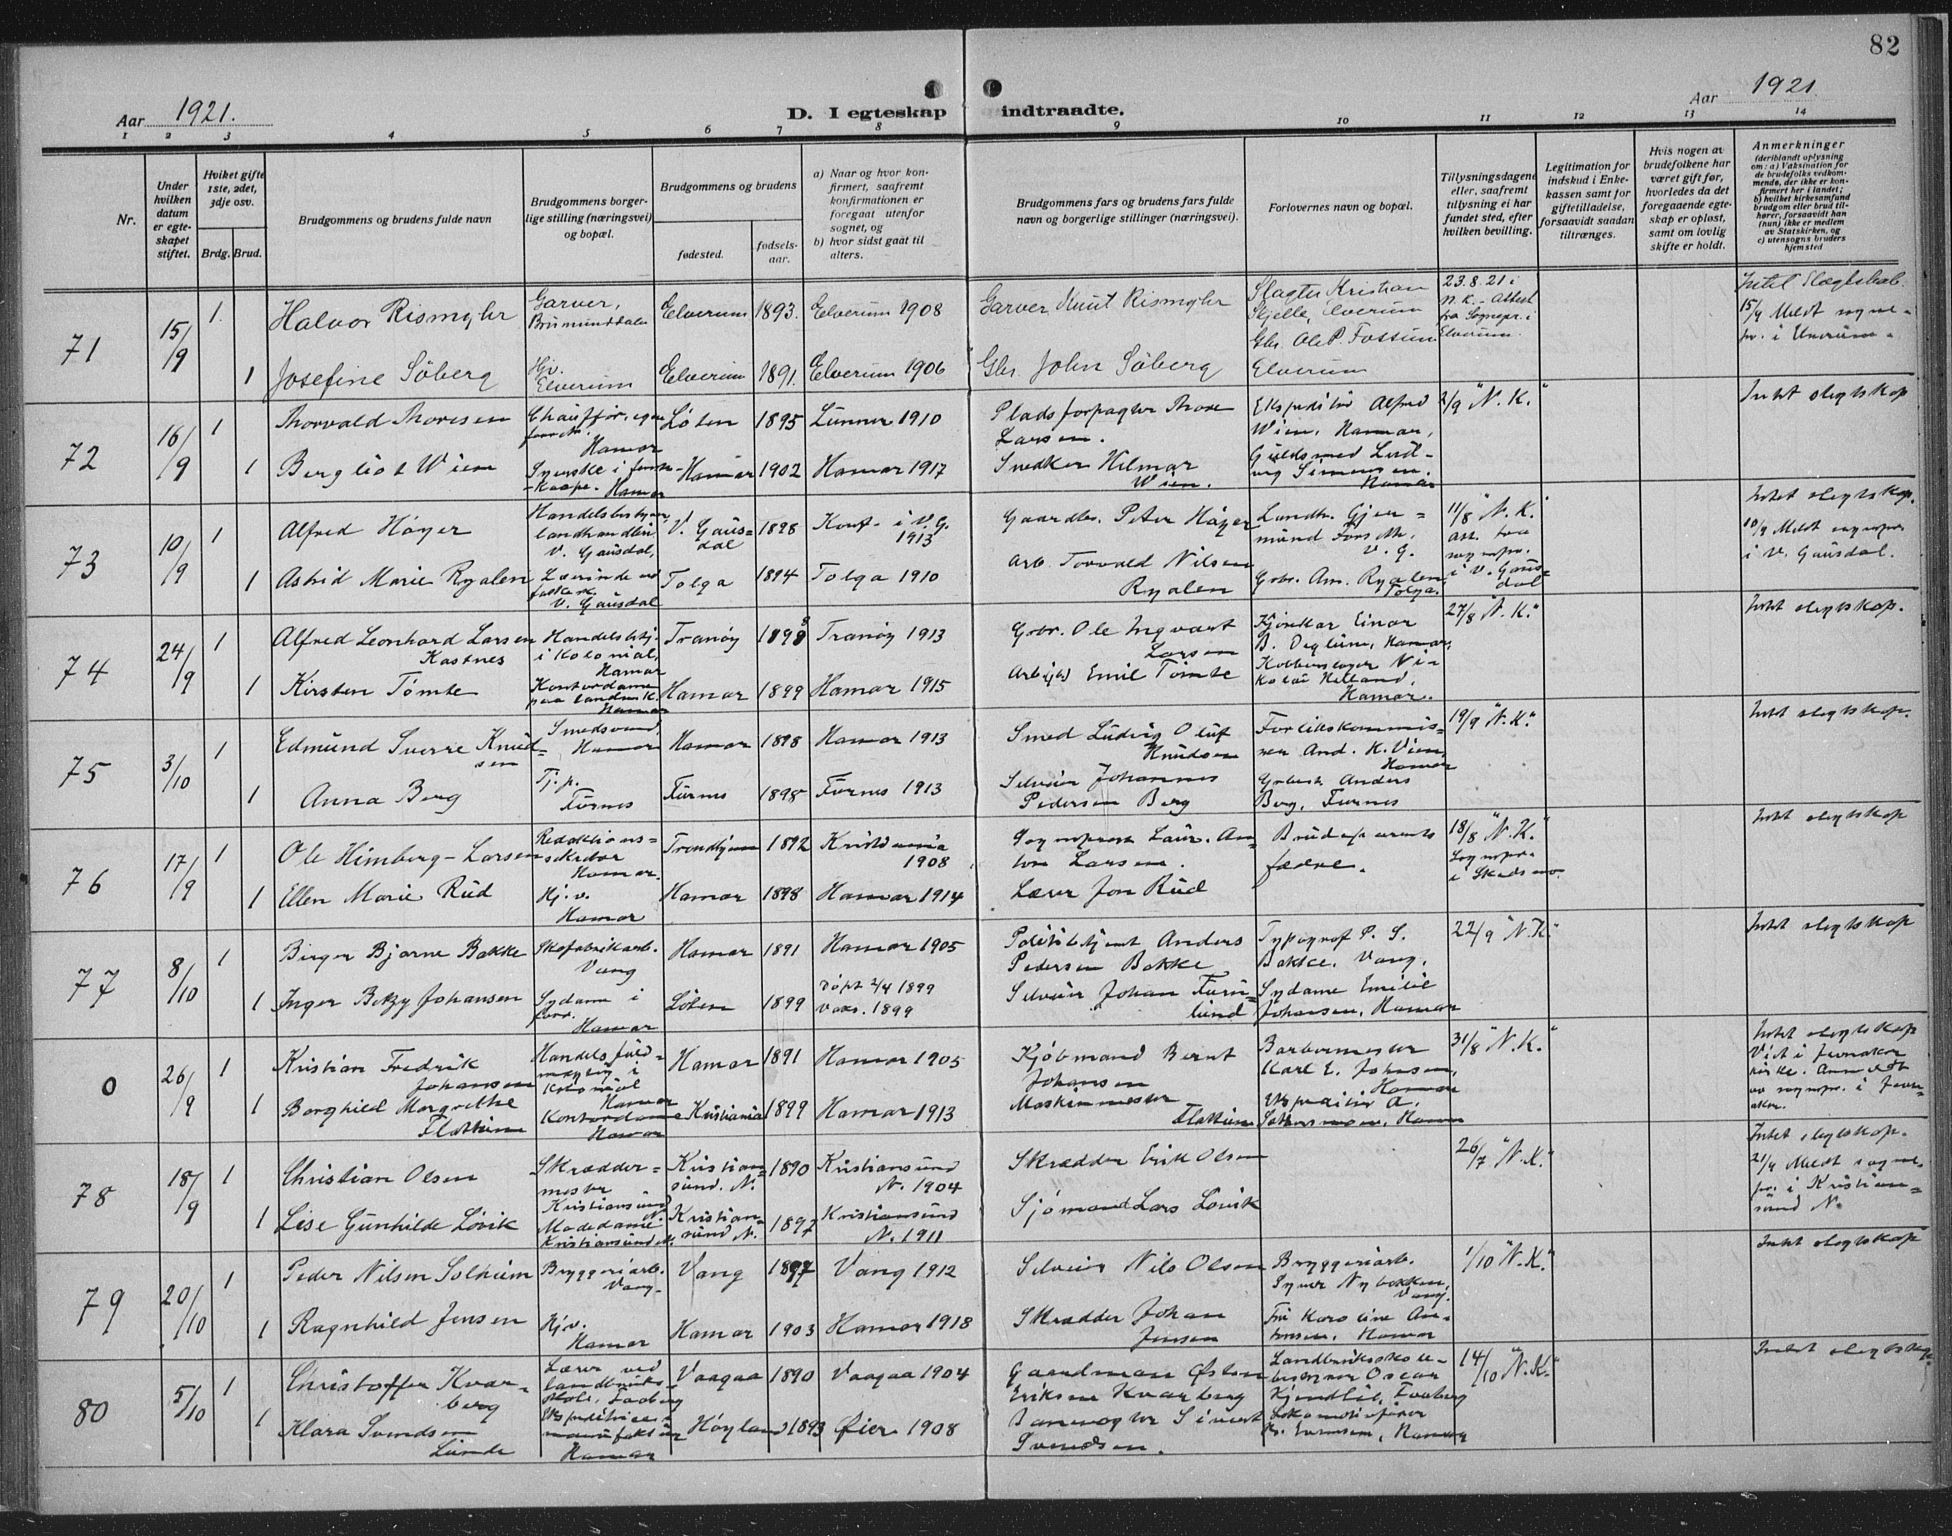 82
Aar 1921.
D. I egteskap indtraadte.
Aar 1921
1 2 3 4 5 6 7 8 9 10 11 12 13 14
Nr.
Under hvilken datum er egteskapet stiftet.
Hvilket gifte 1ste, 2det, 3dje osv.
Brdg. Brud.
Brudgommens og brudens fulde navn
Brudgommens borgerlige stilling (næringsvei) og bopæl.
Brudgommens og brudens
fødested.
fødsels-aar.
a) Naar og hvor konfirmert, saafremt konfirmationen er foregaat utenfor sognet, og
b) hvor sidst gaat til alters.
Brudgommens fars og brudens fars fulde navn og borgerlige stillinger (næringsvei).
Forlovernes navn og bopæl.
Tillysningsdagene eller, saafremt tillysning ei har fundet sted, efter hvilken bevilling.
Legitimation for indskud i Enkekassen samt for giftetilladelse, forsaavidt saadan tiltrænges.
Hvis nogen av brudefolkene har været gift før, hvorledes da det foregaaende egteskap er opløst, samt om lovlig skifte er holdt.
Anmerkninger
(deriblandt oplysning om: a) Vaksination for de brudefolks vedkommende, der ikke er konfirmert her i landet; b) hvilket kirkesamfund brudgom eller brud tilhører, forsaavidt han (hun) ikke er medlem av Statskirken, og c) utensogns bruders hjemsted
71 15/9 1. Halvor Rismyhr Garver, Brumunddalen Elverum 1893. Elverum 1908 Garver Knut Rismyhr Slagter Kristian Skjelle, Elverum 23.8.21 i N.K. - Attest fra Sognepr. i Elverum. Intet Slegtskab. 15/9 Meldt sognepr. i Elverum.
1 Josefine Söberg Hjv. Elverum Elverum 1891. Elverum 1906 Gbr. John Söberg Gbr. Ole P. Fossum Elverum
72 16/9 1 Thorvald Thoresen Chauffør, egen forretn. Hamar Løten 1895 Lunner 1910 Pladsforpagter Thore Larsen. Ekspeditör Alfred Wien, Hamar, 2/9 "N. K." Intet slegtskap
1 Bergliot Wien Syerske i Hamar Hamar 1902 Hamar 1917 Snedker Hilmar Wien. Guldsmed Ludvig Simensen. Hamar
73 10/9 1 Alfred Höyer Handelsbestyrer landhandleri V. Gausdal, V. Gausdal 1898 Konf. i V. G. 1913 Gaardbr. Peter Höyer Landh. Gjermund Forseth, V. G. 11/8 "N. K." att. fra sognepr. i V. Gausdal Intet slegtskap. 10/9 Meldt sognepr i V. Gausdal.
1 Astrid Marie Ryalen Lærerinde V. Gausdal Tolga 1894 Tolga 1910 Arb. Torvald Nilsen Ryalen Gbr. Am. Ryalen, Tolga.
74 24/9 1 Alfred Leonhard Larsen Kastnes Handelsbestj. i Kolonial, Hamar Tranöy 1898 Tranöy 1913 Gbr. Ole Ingvart Larsen Kjörekar Einar B. Deglum, Hamar, 27/8 "N. K." Intet slegtskap.
1 Kirsten Tömte Kontordame paa landm.k. Hamar Hamar 1899 Hamar 1915 Arb(as) Emil Tömte Kobberslager Nikolai Helland, Hamar.
75 3/10 1 Edmund Sverre Knudsen Smedsvend, Hamar Hamar 1898 Hamar 1913 Smed Ludvig Oluf Knudsen Forlikskommissær And. K. Vien, Hamar 19/9 "N. K." Intet slegtskap.
1 Anna Berg Tj.p. Furnes Furnes 1898 Furnes 1913 Selveier Johannes Pedersen Berg Gbr. Anders Berg, Furnes
76 17/9 1 Ole Himberg-Larsen Redaktions-sekretær Hamar. Trondhjem 1892 Kristiania 1908 Sogneprest Laur. Anton Larsen. Brudeparrets fædre. 18/8 "N. K." Sognepr. i Skedsmo. Intet slegtskap
1 Ellen Marie Rud Hj.v. Hamar Hamar 1898 Hamar 1914 Lærer Jon Rud
77 8/10 1 Birger Bjarne Bakke Skofabrikarb. Vang Hamar 1891 Hamar 1905 Politibetjent Anders Pedersen Bakke Typograf P. S. Bakke, Vang, 22/9 "N. K." Intet slegtskap
1 Inger Betzy Johansen Sydame i forr. Hamar Löten 1899 döpt 2/4 1899 vacc. 1899 Selveier Johan Furulund Sydame Emilie Johansen, Hamar
0 26/9 1 Kristian Fredrik Johansen Handelsfuldmægtig i Kolonial Hamar Hamar 1891 Hamar 1905 Kjöbmand Bernt Johansen Barbermester Karl E. Johnsen, Hamar 31/8 "N. K." Intet slegtskap Vist i kirke.
1 Borghild Margrethe Flathum Kontordame Hamar Kristiania 1899 Hamar 1913 Maskinmester Flathum Ekspeditör A. Hamar
78 18/9 1 Christian Olsen Skræddermester Kristiansund N. Kristiansund N. 1890 Kristiansund N. 1904 Skrædder Erik Olsen 26/7 "N.K." Intet slegtskap. 21/9 Meldt sognepr. i Kristiansund N.
1 Lise Gunhilde Lövik Modedame Kristiansund N. Kristiansund N. 1897 Kristiansund N. 1911 Sjömand Lars Lövik
79 20/10 1 Peder Nilsen Solheim Bryggeriarb. Vang. Vang 1897 Vang 1912 Selveier Nils Olsen Bryggeriarb. Syver Nybakken, Vang. 1/10 "N.K." Intet slegtskap
1 Ragnhild Jensen Hj.v. Hamar Hamar 1903 Hamar 1918 Skrædder Johan Jensen Fru Karoline Antonsen, Hamar
80 5/10 1 Christoffer Kvarberg Lærer ved landbruksskole, Faaberg Vaagaa 1890 Vaagaa 1904 Gaardman Østen Eriksen Kvarberg Landbruksskolebestyrer Oscar Kjendlie, Faaberg 14/10 "N.K." Intet slegtskap
1 Klara Svendsen Lunde Ekspeditrice i manufaktur Hamar Höyland 1893 Øier 1908 Banevogter Sivert Svendsen. Lokomotivförer Hamar